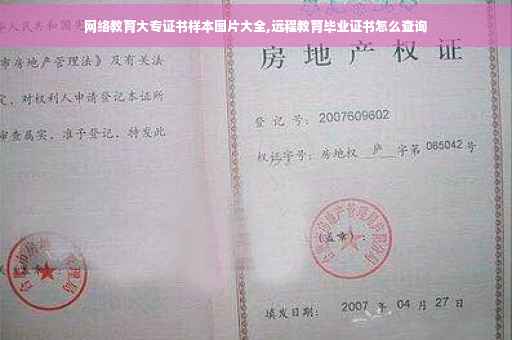 网络教育大专证书样本图片大全,远程教育毕业证书怎么查询
华人民共和国宪
市房地产管理法》及有关法
定，对权利人申请登记本证所
审查属实，准予登记，特发此
房地产权证
登记号：2007609602
权证字号：房地权 庐 字第 085042 号
(盖章)：
填发日期： 2007 年 04 月 27 日